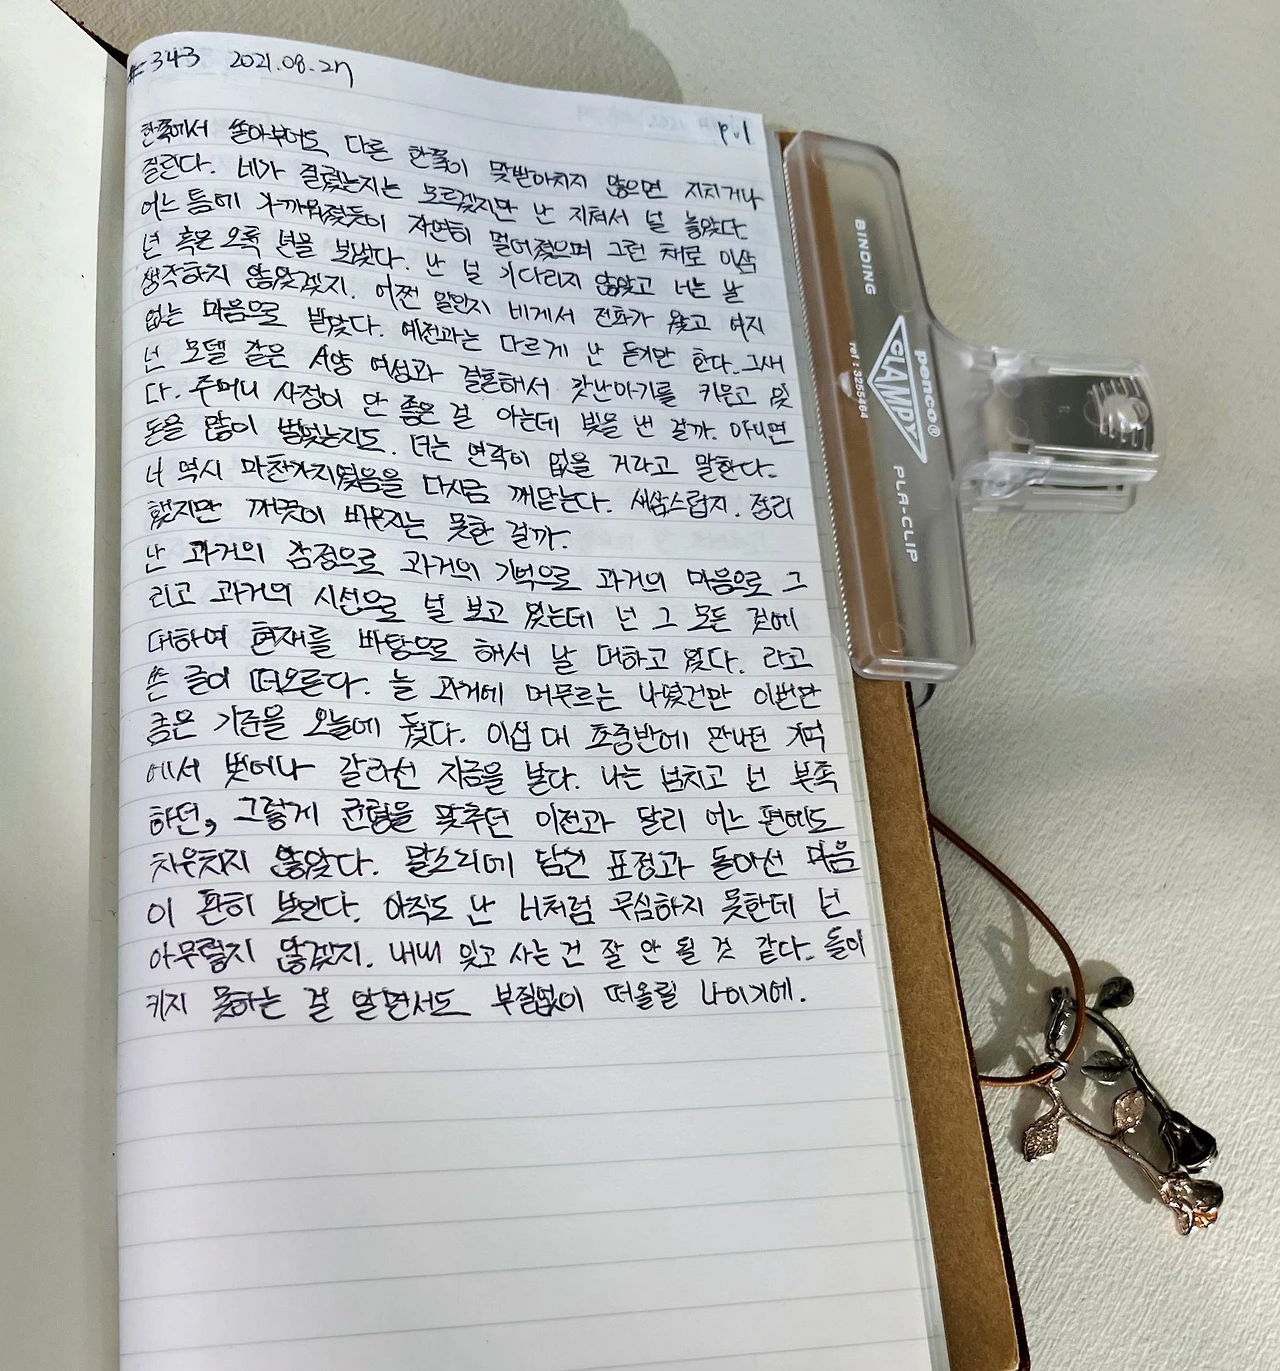 #343 2021.08.27
p.1
한쪽에서 쏟아부어도 다른 한쪽이 맞받아치지 않으면 지치거나
질린다. 네가 질렸는지는 모르겠지만 난 지쳐서 널 놓았다.
어느 틈에 가까워졌듯이 자연히 멀어졌으며 그런 채로 이삼
년 혹은 오륙 년을 보냈다. 난 널 기다리지 않았고 너는 날
생각하지 않았겠지. 어쩐 일인지 네게서 전화가 왔고 여지
없는 마음으로 받았다. 예전과는 다르게 난 듣기만 한다. 그새
넌 모델 같은 A양 여성과 결혼해서 갓난아기를 키운고 있
다. 주머니 사정이 안 좋은 걸 아는데 빚을 낸 걸까. 아니면
돈을 많이 벌었는지도. 너는 연락이 없을 거라고 말한다.
너 역시 마찬가지였음을 다시금 깨닫는다. 새삼스럽지. 정리
했지만 깨끗이 비우지는 못한 걸까.
난 과거의 감정으로 과거의 기억으로 과거의 마음으로 그
리고 과거의 시선으로 널 보고 있는데 넌 그 모든 것에
대하여 현재를 바탕으로 해서 날 대하고 있다. 라고
쓴 글이 떠오른다. 늘 과거에 머무르는 나였건만 이번만
큼은 기준을 오늘에 뒀다. 이십 대 초중반에 만나던 기억
에서 벗어나 갈라선 지금을 봤다. 나는 넘치고 넌 부족
하던, 그렇게 균형을 맞추던 이전과 달리 어느 편에도
치우치지 않았다. 말소리에 담긴 표정과 돌아선 마음
이 훤히 보인다. 아직도 난 너처럼 무심하지 못한데 넌
아무렇지 않겠지. 내내 잊고 사는 건 잘 안 될 것 같다. 돌이
키지 못하는 걸 알면서도 부질없이 떠올릴 나이기에.
BINDING
penco®
CLAMPY
Tel : 3255464
PLA-CLIP